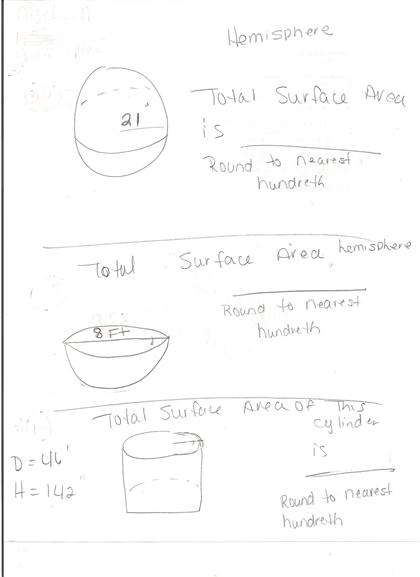 Hemisphere
Total Surface Area
21"
is
Round to nearest
hundreth
Total Surface Area, hemisphere
Round to nearest
hundreth
8 Ft
Total Surface Area of This
cylinder
D = 46'
is
H = 142"
Round to nearest
hundreth